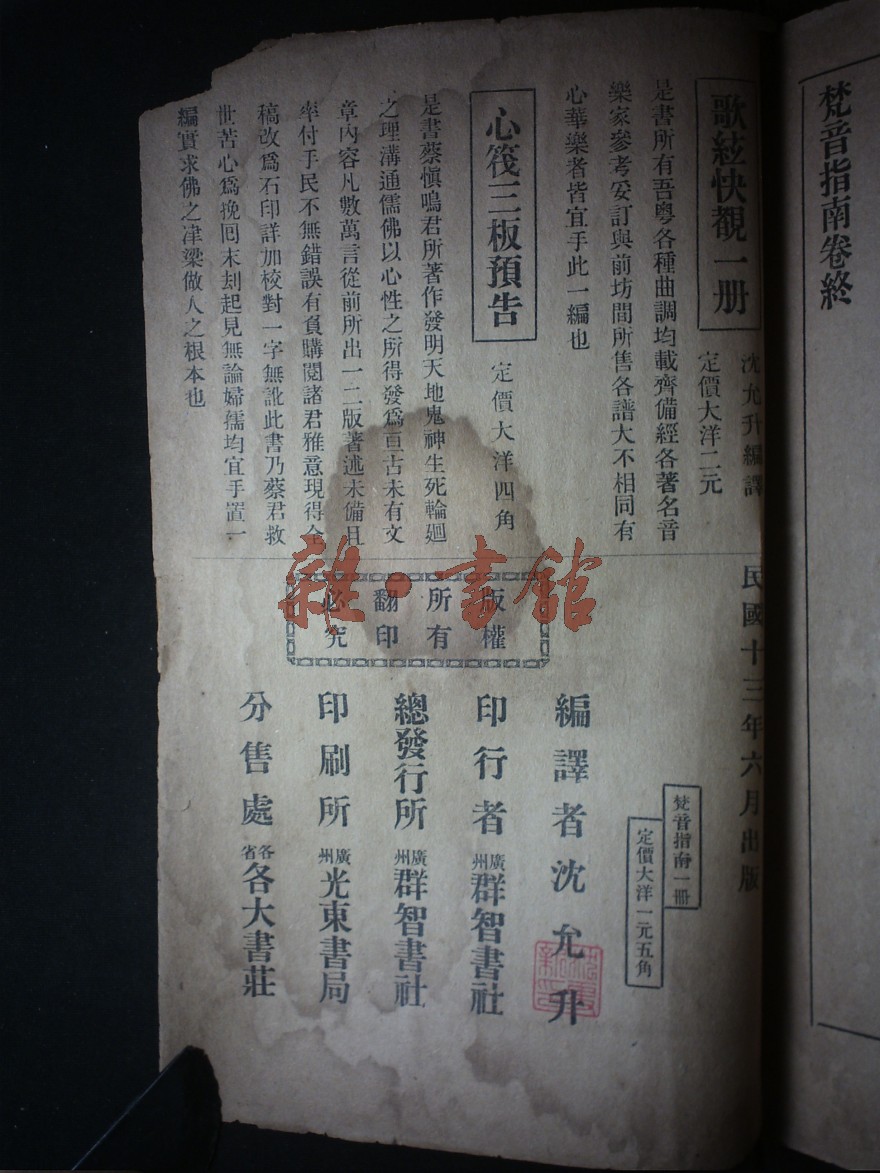 梵音指南卷終
歌絃快觀一册
沈允升編譯
定價大洋二元
是書所有吾粵各種曲調均載齊備經各著名音
樂家參考妥訂與前坊間所售各譜大不相同有
心華樂者皆宜手此一編也
心筏三板預告
定價大洋四角
是書蔡愼鳴君所著作發明天地鬼神生死輪廻
之理溝通儒佛以心性之所得發爲亘古未有文
章內容凡數萬言從前所出一二版著述未備且
率付手民不無錯誤有負購閱諸君雅意現得全
稿改爲石印詳加校對一字無訛此書乃蔡君救
世苦心爲挽囘末刼起見無論婦孺均宜手置一
編實求佛之津梁做人之根本也
民國十三年六月出版
梵音指南一冊
定價大洋一元五角
版權
所有
翻印
必究
編譯者沈允升
印行者廣州群智書社
總發行所廣州群智書社
印刷所廣州光東書局
分售處各省各大書莊
雜·書館